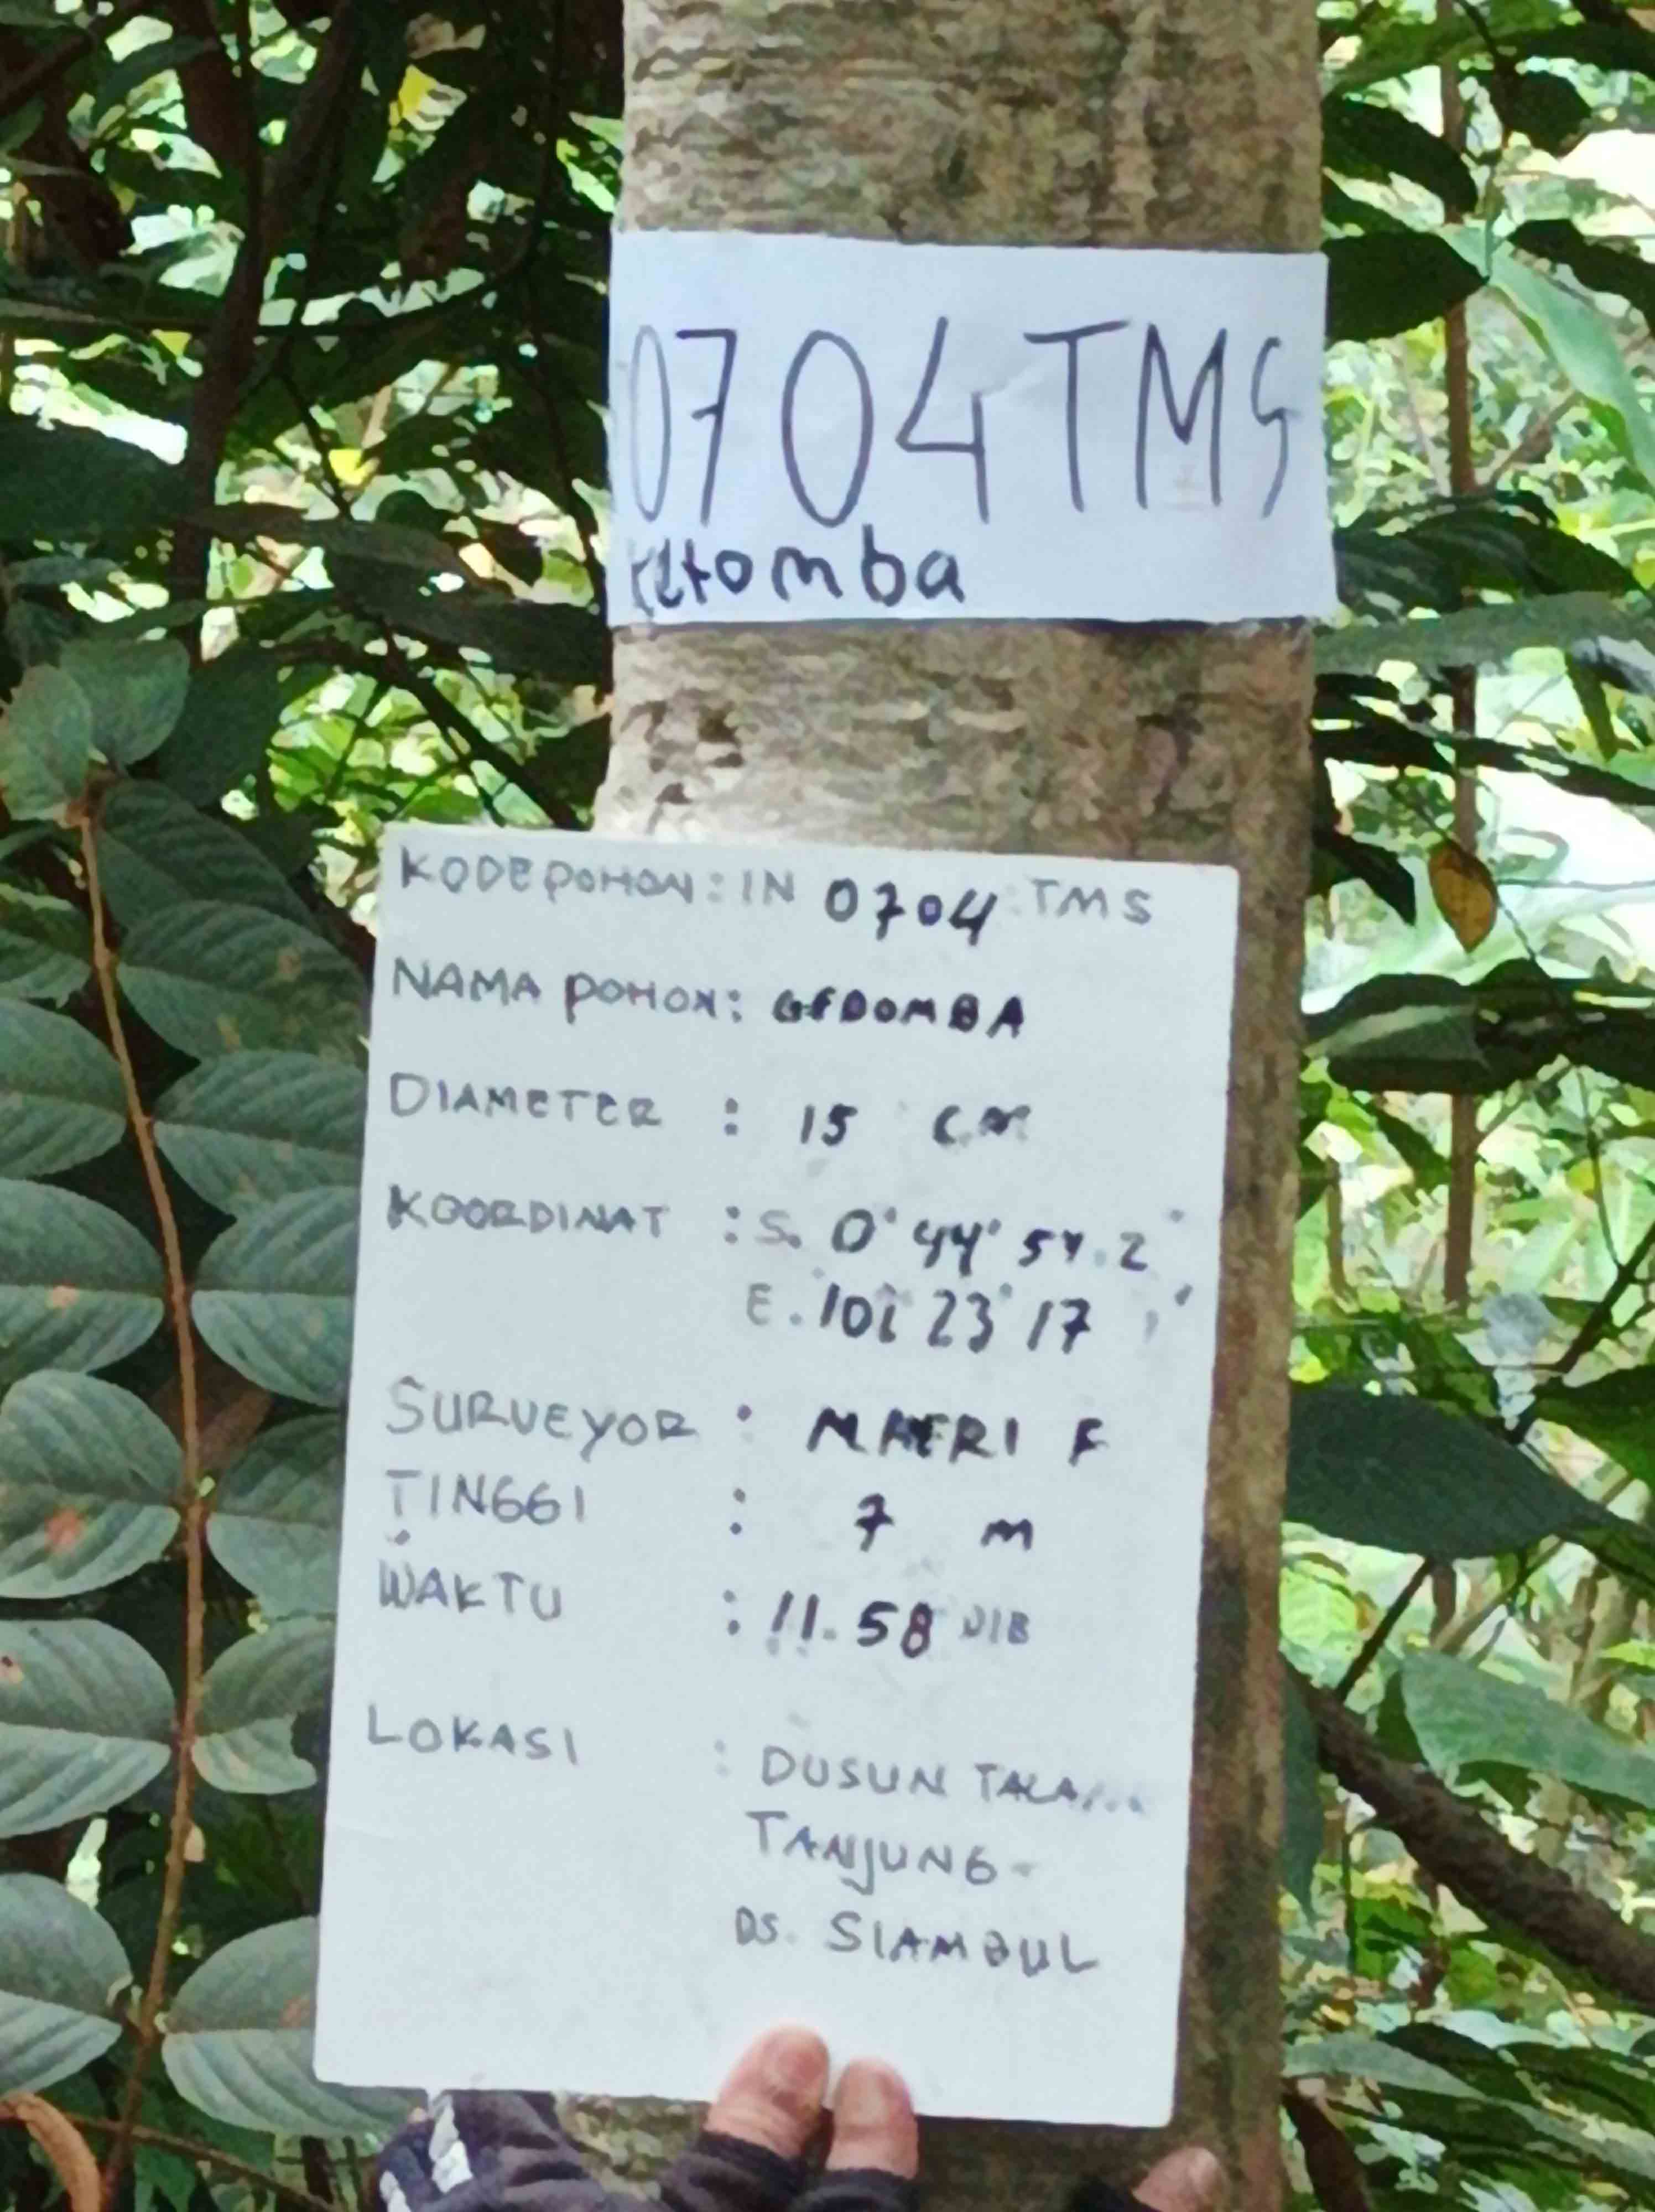 0704 TMS
KODE POHON : IN 0704 TMS
NAMA POHON : GEDOMBA
DIAMETER : 15 CM
KOORDINAT : S. 0° 44' 54.2"
E. 102° 23' 17"
SURVEYOR : MAERI F
TINGGI : 7 m
WAKTU : 11.58 WIB
LOKASI : DUSUN
TANJUNG
DS. SIAMBUL